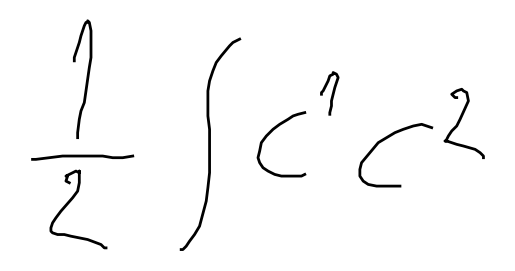 \frac{1}{2} \int c^1 c^2